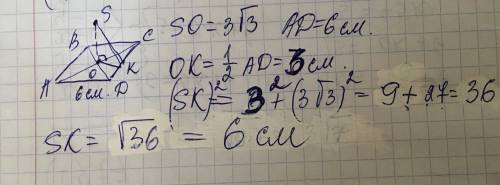 S
B C
SO = 3√3 AD = 6 см.
O K
A 6 см. D
OK = 1/2 AD = 3 см.
(SK)² = 3² + (3√3)² = 9 + 27 = 36
SK = √36 = 6 см